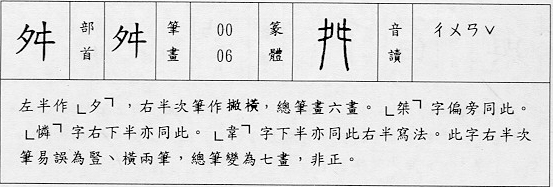 舛 部首 舛 筆畫 00 06 篆體 音讀 ㄔㄨㄢˇ
左半作「夕」，右半次筆作撇橫，總筆畫六畫。「桀」字偏旁同此。
「憐」字右下半亦同此。「韋」字下半亦同此右半寫法。此字右半次
筆易誤為豎、橫兩筆，總筆變為七畫，非正。